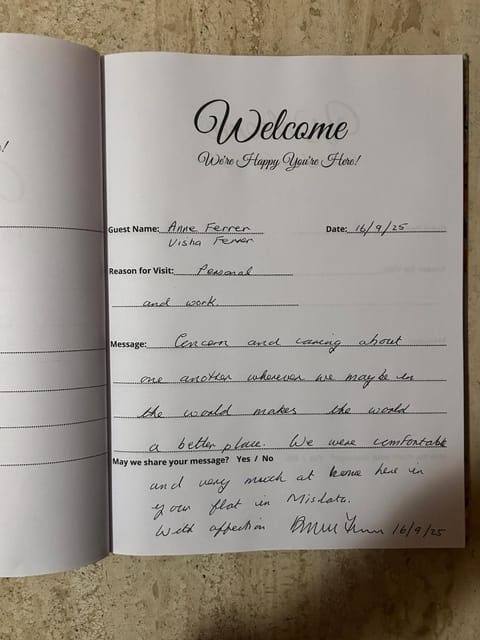 !
Welcome
We're Happy You're Here!
Guest Name: Anne Ferrer Date: 16/9/25
Visha Ferrer
Reason for Visit: Personal
and work.
Message: Concern and caring about
one another wherever we may be in
the world makes the world
a better place. We were comfortable
May we share your message? Yes / No
and very much at home here in
your flat in Mislata.
With affection 16/9/25